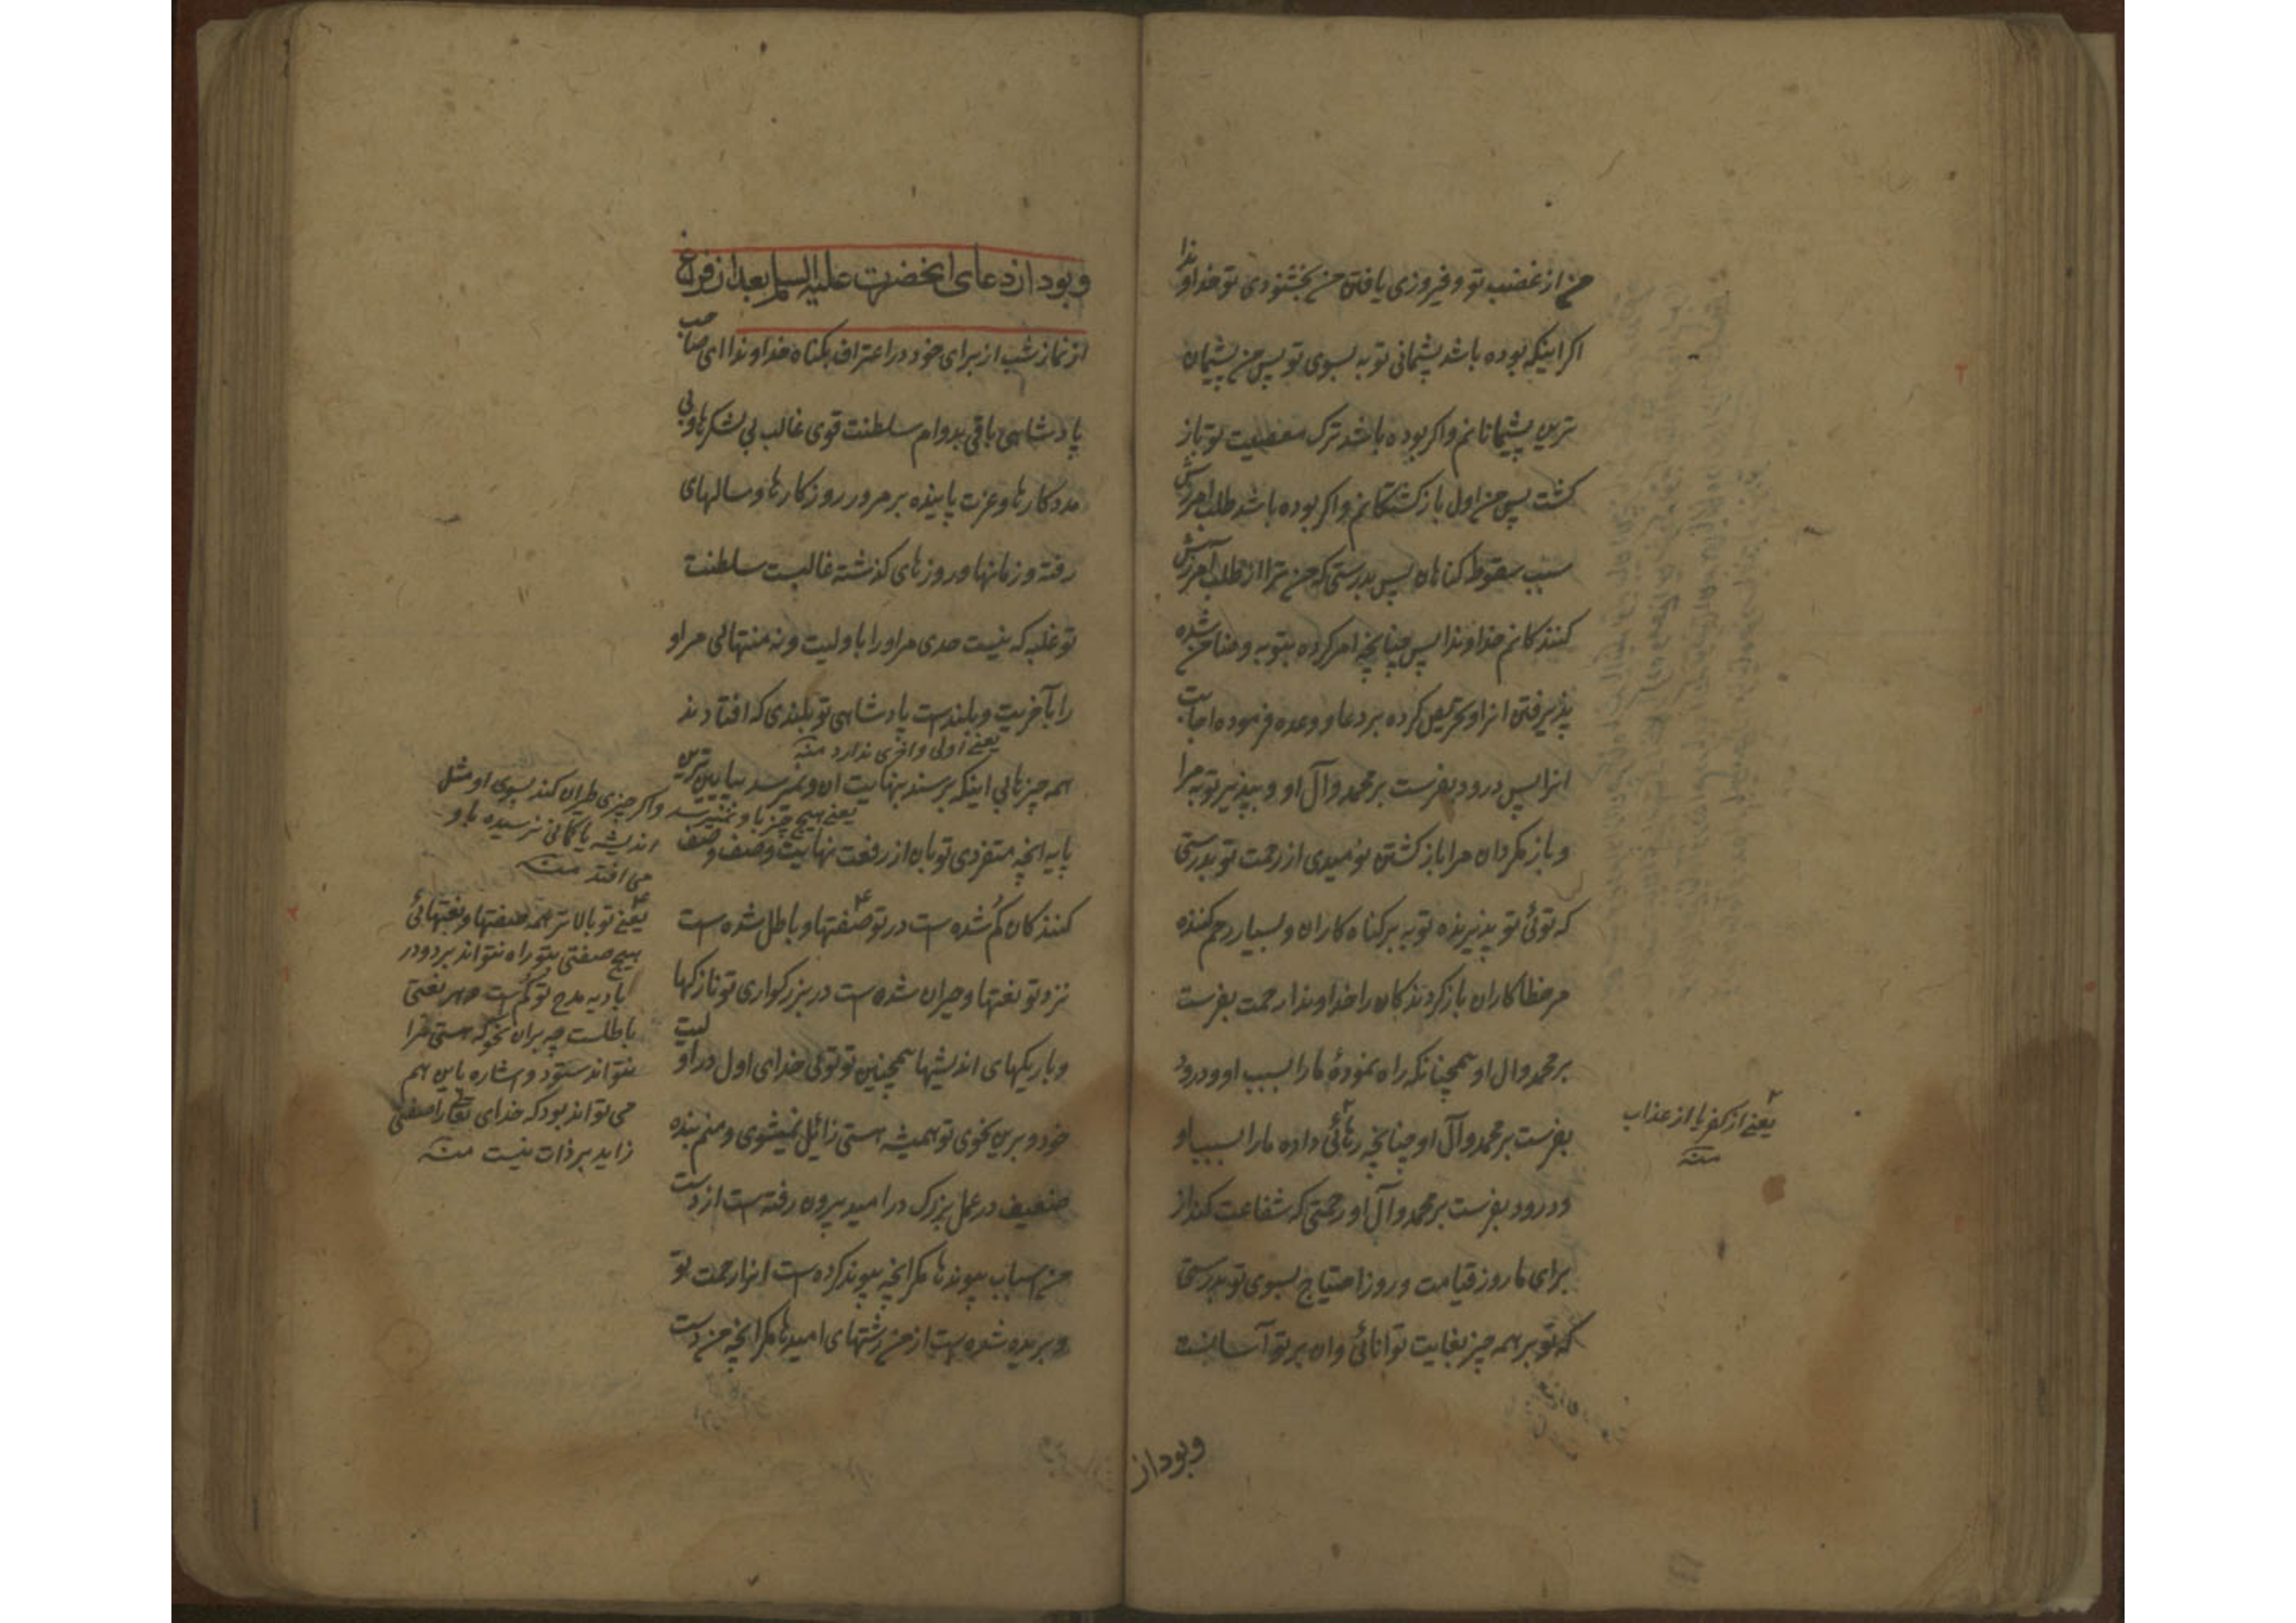 من از غضب تو و فیروزی یافتن من بخشنودی تو خداوندا
اکر اینکه بوده باشد پشیمانی توبه بسوی تو پس من پشیمان
ترین پشیمانانم و اکر بوده باشد ترک معصیت تو باز
کشت پس من اول بازکشتکانم و اکر بوده باشد طلب امرزش
سبب سقوط کناهان پس بدرستی که من ترا از طلب امرزش
کنندکانم خداوندا پس چنانچه امر کرده بتوبه و ضامن شده
پذیرفتن انرا و تحریص کرده بر دعا و وعده فرموده اجابت
انرا پس درود بفرست بر محمد و آل او و بپذیر توبه مرا
و باز مکردان مرا باز کشتن نومیدی از رحمت تو بدرستی
که توئی تو پذیرنده توبه بر کناه کاران و بسیار رحم کننده
مر خطا کاران باز کردندکان را خداوندا رحمت بفرست
بر محمد و ال او همچنانکه راه نمودهٔ مارا بسبب او و درود
بفرست بر محمد و آل او چنانچه رهائی داده مارا بسبب او
و درود بفرست بر محمد و آل او رحمتی که شفاعت کند از
برای ما روز قیامت و روز احتیاج بسوی تو بدرستی
که تو بر همه چیز بغایت توانائی و ان بر تو آسانست
یعنی از کفر یا از عذاب
منه
و بود از
و بود از دعای انحضرت علیه السلم بعد از فروغ
از نماز شب از برای خود در اعتراف بکناه خداوندا ای صاحب
پادشاهی باقی بدوام سلطنت قوی غالب بی لشکرها و بی
مددکارها و عزت پاینده بر مرور روزکارها و سالهای
رفته و زمانها و روزهای کذشته غالبست سلطنت
تو غلبه که نیست حدی مر اورا باولیت و نه منتهائی مر او
را بآخریت و بلندست پادشاهی تو بلندی که افتادند
یعنی اولی و اخری ندارد منه
همه چیزها بی اینکه برسند بنهایت ان و نمیرسد بپایین ترین
یعنی هیچ چیز باو نمیرسد و اکر چیزی طیران کند بسوی او مثل
اندیشه یا کمانی نرسیده باو
می افتد منه
پایه انچه متفردی تو بان از رفعت نهایت وصف وصف
کنندکان کم شده است در تو صفتها و باطل شده است
نزد تو نعتها و حیران شده است در بزرکواری تو نازکیها
و باریکیهای اندیشها همچنین تو توئی خدای اول در اولیت
خود و برین نحوی تو همیشه هستی زائل نمیشوی و منم بنده
ضعیف در عمل بزرک در امید بیرون رفته است از دست
من اسباب پیوندها مکر انچه پیوند کرده است انرا رحمت تو
و بریده شده است از من رشتهای امیدها مکر انچه من دست
یعنی تو بالاتر همه صفتها و نعتهائی
هیچ صفتی بتو راه نتواند برد و در
بادیه مدح تو کم است و هر نعتی
باطلست چه بران نحو که هستی ترا
نتواند ستود و اشاره باین هم
می تواند بود که خدای تعالی را صفتی
زاید بر ذات نیست منه